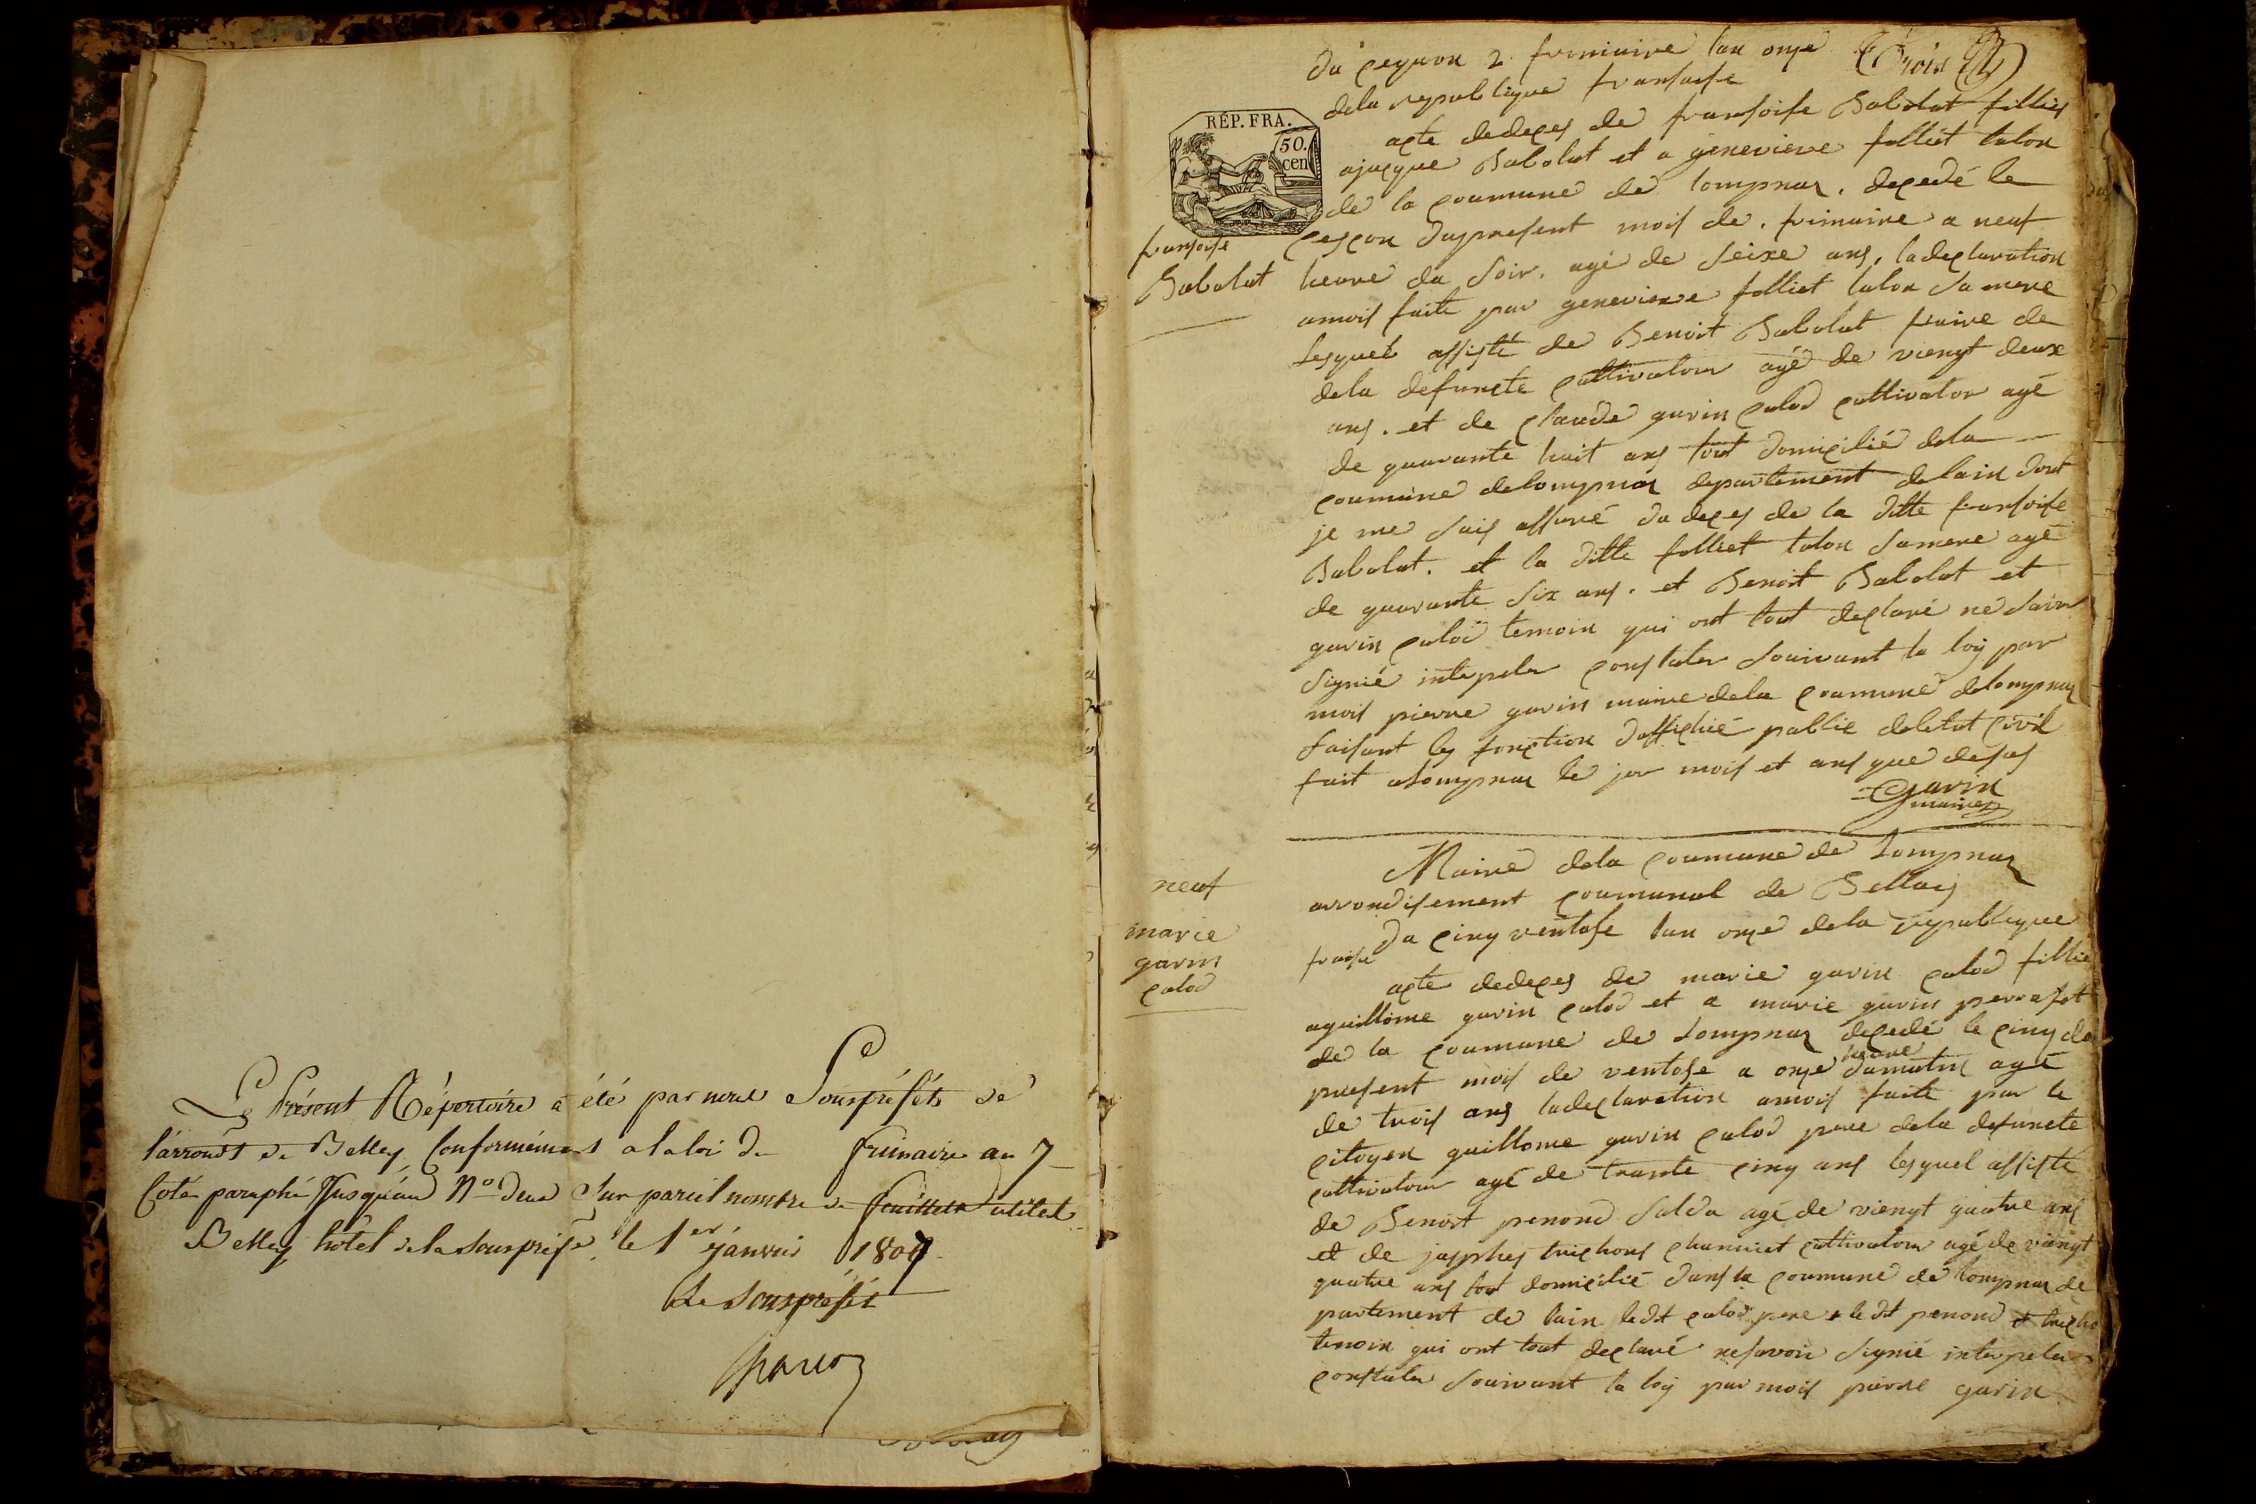 Le Présent Répertoire a été par nous Souspréfét de
l'arrondt de Belley Conformément a la loi du frimaire an 7
Coté & paraphé Jusquau No deux Sur pareil nombre de feuillets
Belley hôtel de la Souspréfre le 1er janvier 1807
Le Souspréfet
du segxon 2 frimiaire lan onze Trois
dela republique fransaise
RÉP. FRA.
50.
cen
acte dedeces de fransoise Babolat fillies
ajacque Babolat et a genevieve folliet talon
de la coumune de lompnas . decedé le
fransoise
Babolat
duspresent mois de . frimaire a neuf
heure du soir . agé de seixe ans . ladeclaration
amois faite par genevieve folliet talon sa mere
lesquel assisté de Benoit Babolat fraire de
dela defuncte cultivatour agé de viengt deux
ans . et de claude gavin calod cultivator agé
de quarante huit ans tout domicilié dela
coumune delompnas departement delain dont
je me suis assuré du deces de la ditte fransoise
Babolat . et la ditte folliet talon samere agé
de quarante six ans . et Benoit Babolat et
gavin calod temoin qui ont tout declaré ne
signié interpeler constater souivant la loy par
mois pierre gavin maire dela coumune delompnas
faisant les fonction dofficié public deletat civil
fait alompnas le jor mois et ans que desus
gavin
maire
Maire dela coumune de Lompnas
arrondisement coumunal de Bellay
neuf
marie
gavin
calod
du cinq ventose lan onze dela republique
fraise
acte dedeces de marie gavin calod fillie
aguillome gavin calod et a marie gavin
de la coumune de Lompnas decedé le cinq du
present mois de ventose a onze heure dumatin agé
de trois ans ladeclaration amois faite par le
citoyen guillome gavin calod pere dela defuncte
cultivatour agé de trante cinq ans lesquel assisté
de Benoit penond agé de viengt quatre ans
et de josephes cultivatour agé de viengt
quatre ans tout domicilié dans la coumune de lompnas de
partement de lain ledit calod pere & le dit penond et
temoin qui ont tout declaré nesavoir signié interpeler
constater souivant la loy par mois pierre gavin